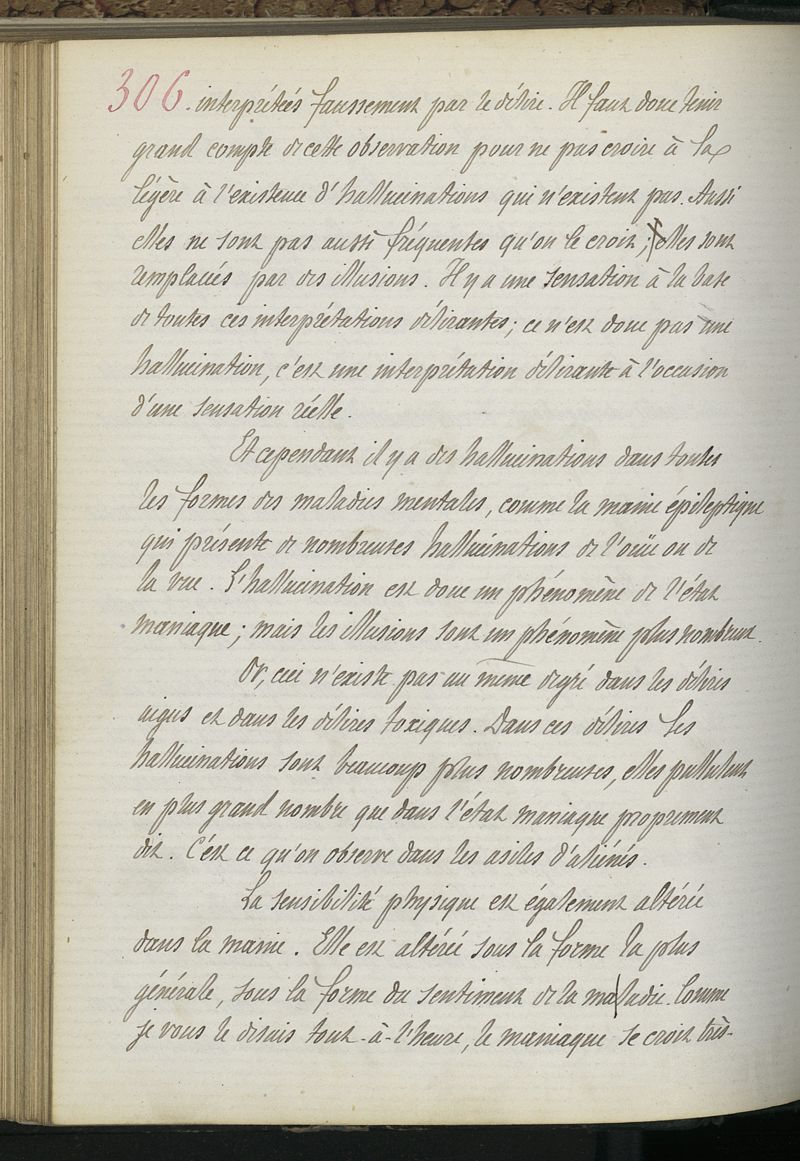 306. interprétées faussement par le délire. Il faut donc tenir
grand compte de cette observation pour ne pas croire à la
légère à l'existence d'hallucinations qui n'existent pas. Aussi
elles ne sont pas aussi fréquentes qu'on le croit; elles sont
remplacées par des illusions. Il y a une sensation à la base
de toutes ces interprétations délirantes; ce n'est donc pas une
hallucination, c'est une interprétation délirante à l'occasion
d'une sensation réelle.
Et cependant il y a des hallucinations dans toutes
les formes des maladies mentales, comme la manie épileptique
qui présente de nombreuses hallucinations de l'ouïe ou de
la vue. L'hallucination est donc un phénomène de l'état
maniaque; mais les illusions sont un phénomène plus nombreux.
Or, ceci n'existe pas au même degré dans les délires
aigus et dans les délires toxiques. Dans ces délires les
hallucinations sont beaucoup plus nombreuses, elles pullulent
en plus grand nombre que dans l'état maniaque proprement
dit. C'est ce qu'on observe dans les asiles d'aliénés.
La sensibilité physique est également altérée
dans la manie. Elle est altérée sous la forme la plus
générale, sous la forme du sentiment de la maladie. Comme
je vous le disais tout-à-l'heure, le maniaque se croit très-